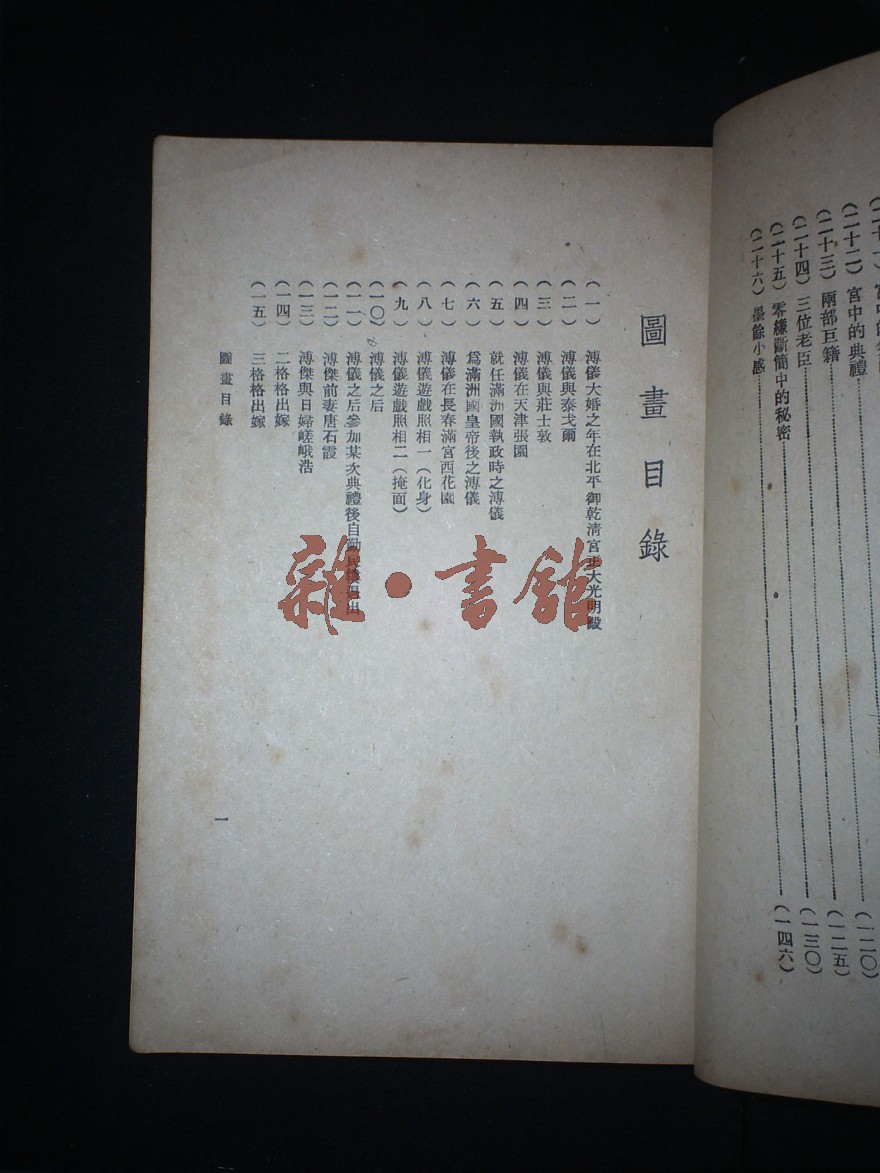 (二十二) 宮中的典禮
(二十三) 兩部巨籍 (一二〇)
(二十四) 三位老臣 (一二五)
(二十五) 零縑斷簡中的秘密 (一三〇)
(二十六) 墨餘小感 (一四六)
圖畫目錄
(一) 溥儀大婚之年在北平御乾清宮步大光明殿
(二) 溥儀與泰戈爾
(三) 溥儀與莊士敦
(四) 溥儀在天津張園
(五) 就任滿洲國執政時之溥儀
(六) 爲滿洲國皇帝後之溥儀
(七) 溥儀在長春滿宮西花園
(八) 溥儀遊戲照相一(化身)
(九) 溥儀遊戲照相二(掩面)
(一〇) 溥儀之后
(一一) 溥儀之后參加某次典禮後自勤民樓退出
(一二) 溥傑前妻唐石霞
(一三) 溥傑與日婦嵯峨浩
(一四) 二格格出嫁
(一五) 三格格出嫁
圖畫目錄
一
雜·書館